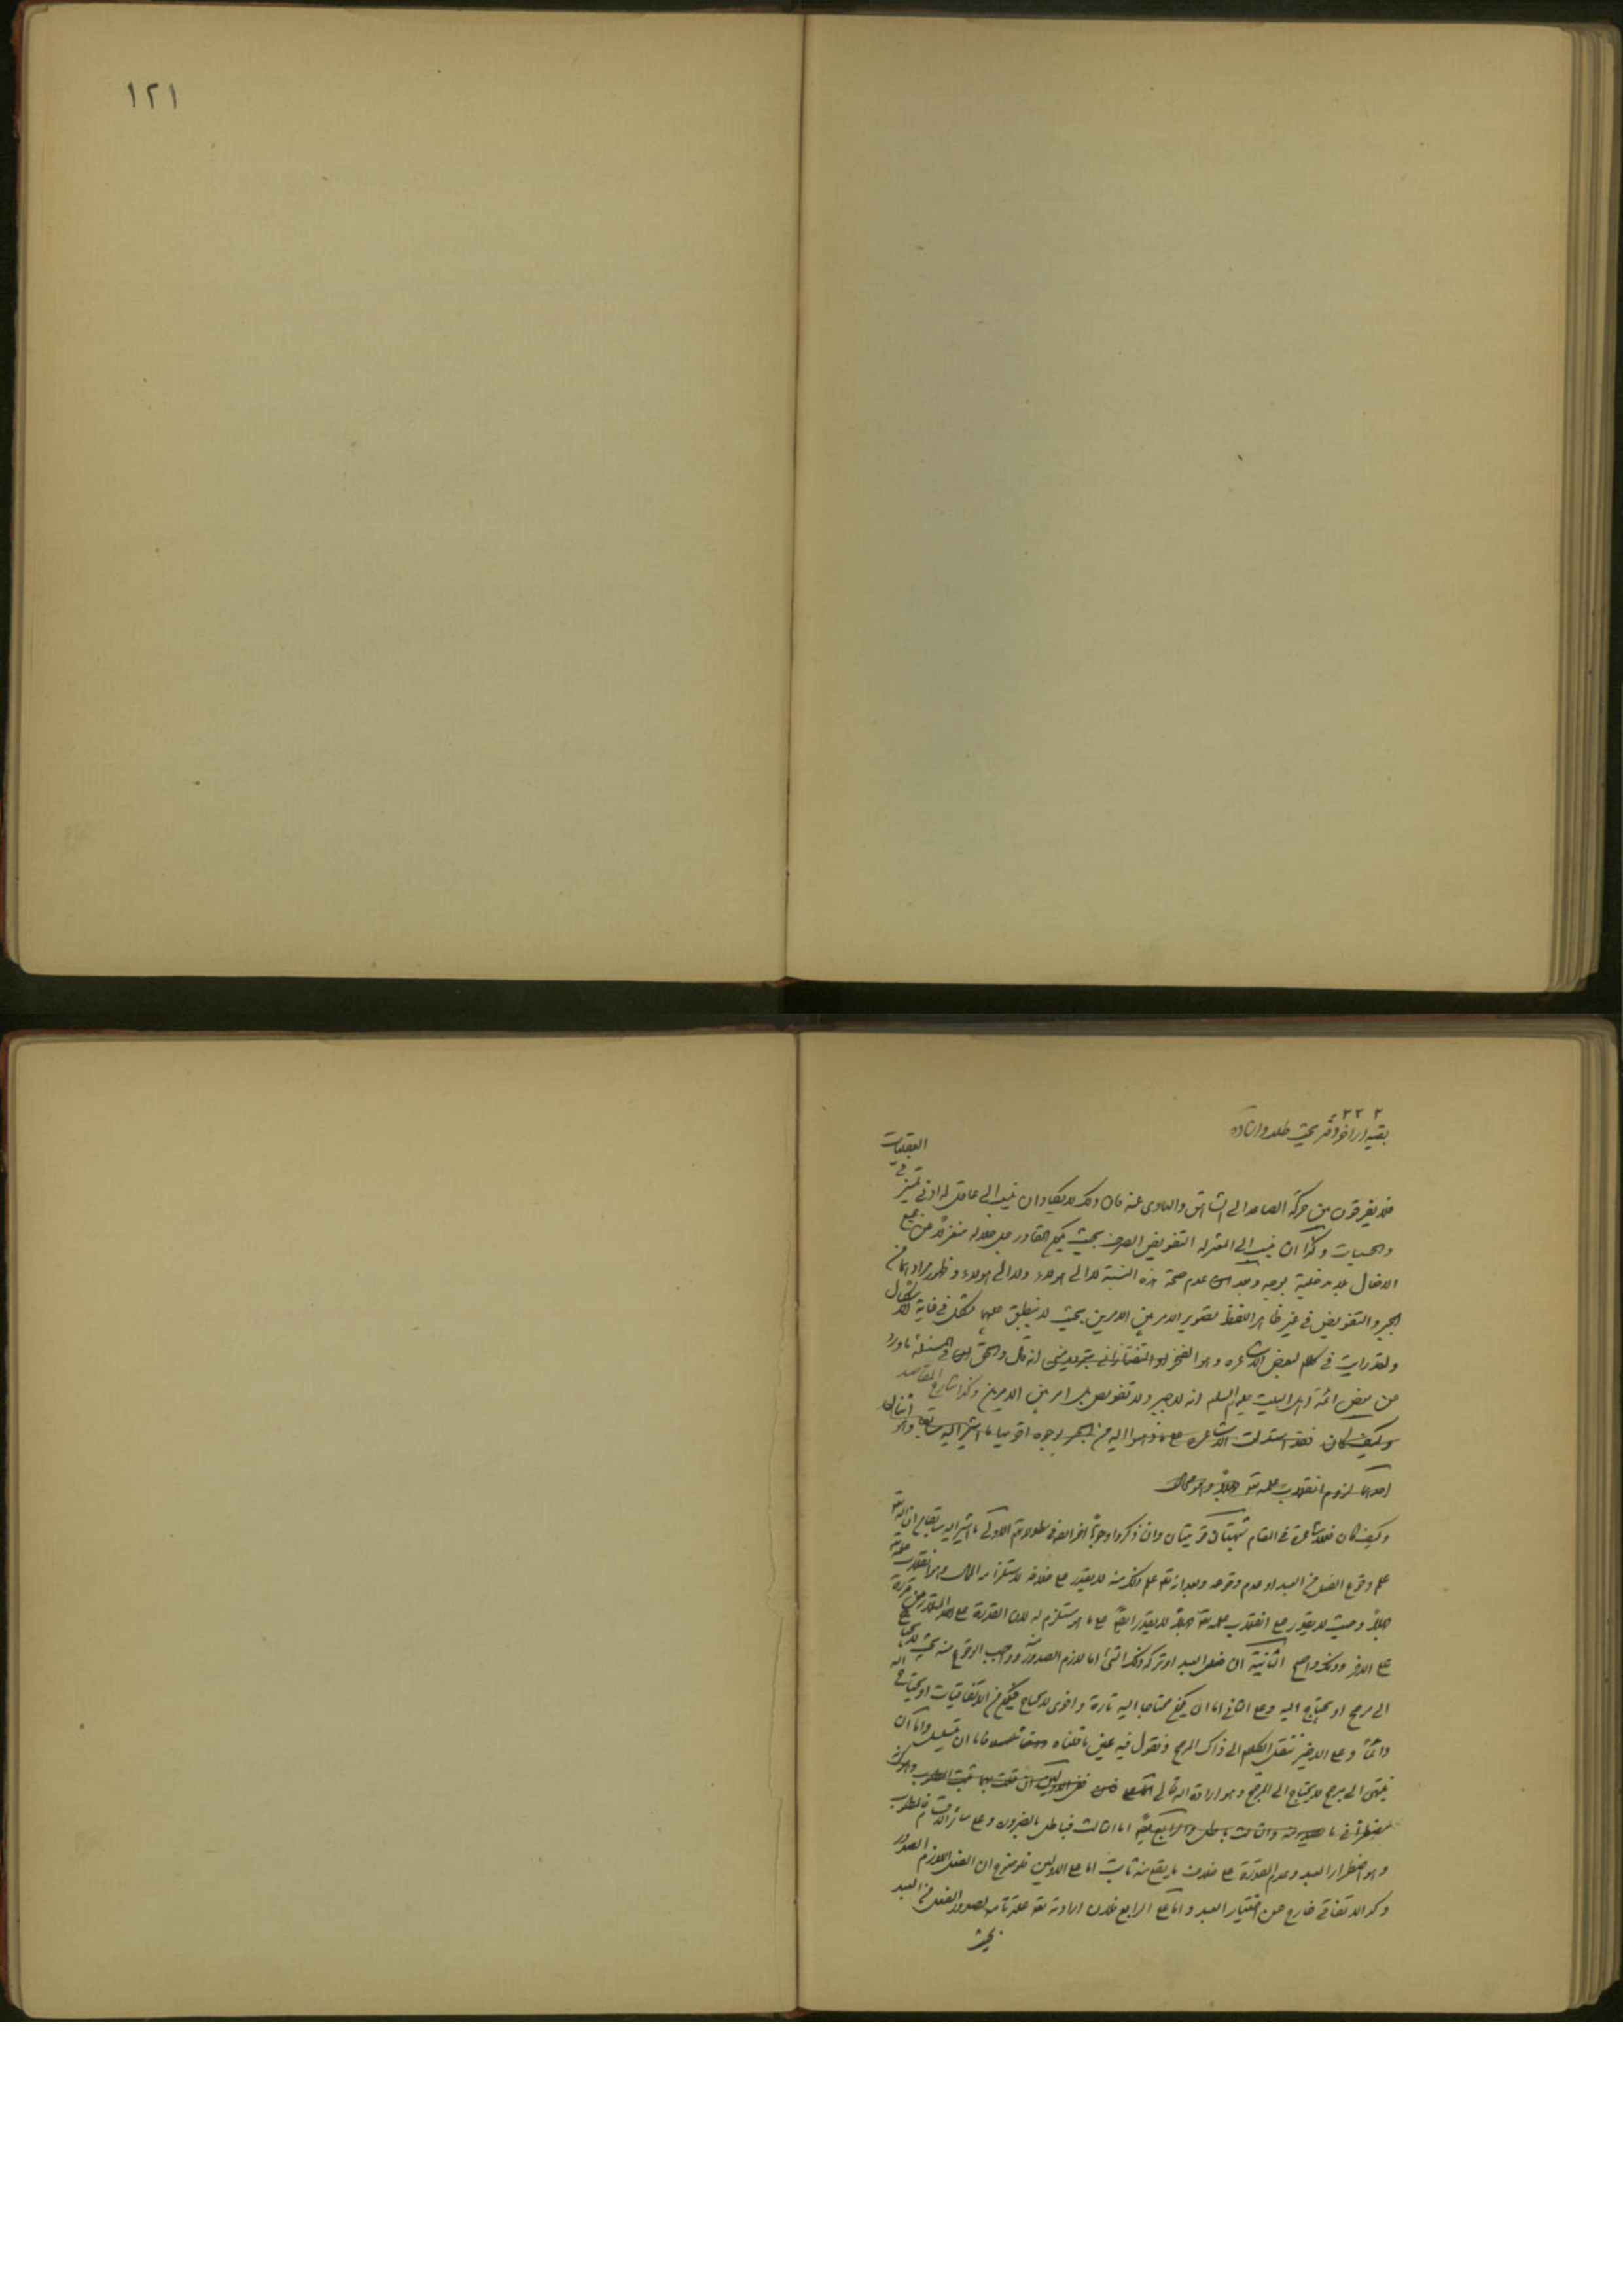 ١٢١
٢ ٢٢٢
بقيه از اخر دفتر بحث طلب واراده
فلا يفرقون بين حركة الصاعد الى الشاهق والهاوى عنه فان ذلك لا يكاد ان ينسب الى عاقل له ادنى تميز فى العقليات
والحسيات وكذا ان ينسب الى المعتزله التفويض الصرف بحيث يكون القادر جل جلاله منعزلا من جميع
الافعال بلا مدخلية بوجه وبعد عدم صحة هذه النسبة لا الى هولاء ولا الى هولاء وظهور مرادهما من
الجبر والتفويض فى غير ظاهر اللفظ تصوير الامر بين الامرين بحيث لا ينطبق عليهما مشكل فى غاية الاشكال
ولقد رايت فى كلام لبعض الاشاعره وهو الفخر او التفتازانى انه قال والحق فى المسئلة ما ورد
عن بعض ائمة اهل البيت عليهم السلام انه لا جبر ولا تفويض بل امر بين الامرين وكذا شارح المقاصد
وكيف كان فقد استدلت الاشاعره على ما ذهبوا اليه من الجبر بوجوه اقويها ما اشير اليه سابقا وهو اثنان
احدهما لزوم انقلاب علمه تعه جهلاً وهو محال
وكيف كان فللاشاعرة فى المقام شبهتان قويتان وان ذكروا وجوهاً اخر ايضا فى طولهما الاولى ما اشير اليه سابقا من ان الله تعه
علم وقوع الفعل من العبد او عدم وقوعه وبعد انه تعه علم ذلك منه لا يقدر على خلافه لاستلزامه المحال وهو انقلاب علمه تعه
جهلاً وحيث لا يقدر على انقلاب علمه تعه جهلاً لا يقدر ايضاً على ما هو مستلزم له لان القدرة على احد المتلازمين قدرة
على الاخر وذلك واضح الثانية ان فعل العبد او تركه ذلك الشئ اما لازم الصدور وواجب الوقوع منه بحيث لا يحتاج
الى مرجح او يحتاج اليه وعلى الثانى اما ان يكون محتاجا اليه تارة واخرى لا يحتاج فيكون من الاتفاقيات او يحتاج اليه
دائماً وعلى الاخير ننقل الكلام الى ذاك المرجح ونقول فيه عين ما قلناه فاما ان يتسلسل واما ان
ينتهى الى مرجح لا يحتاج الى المرجح وهو ارادة الله تعالى
اما الثالث فباطل بالضرورة وعلى سائر الاقسام فالمطلوب
وهو اضطرار العبد وعدم القدرة على خلاف ما يقع منه ثابت اما على الاولين فلوضوح ان الفعل اللازم الصدور
وكذا الاتفاقى خارج عن اختيار العبد واما على الرابع فلان ارادته تعه علة تامه لصدور الفعل من العبد
بحيث